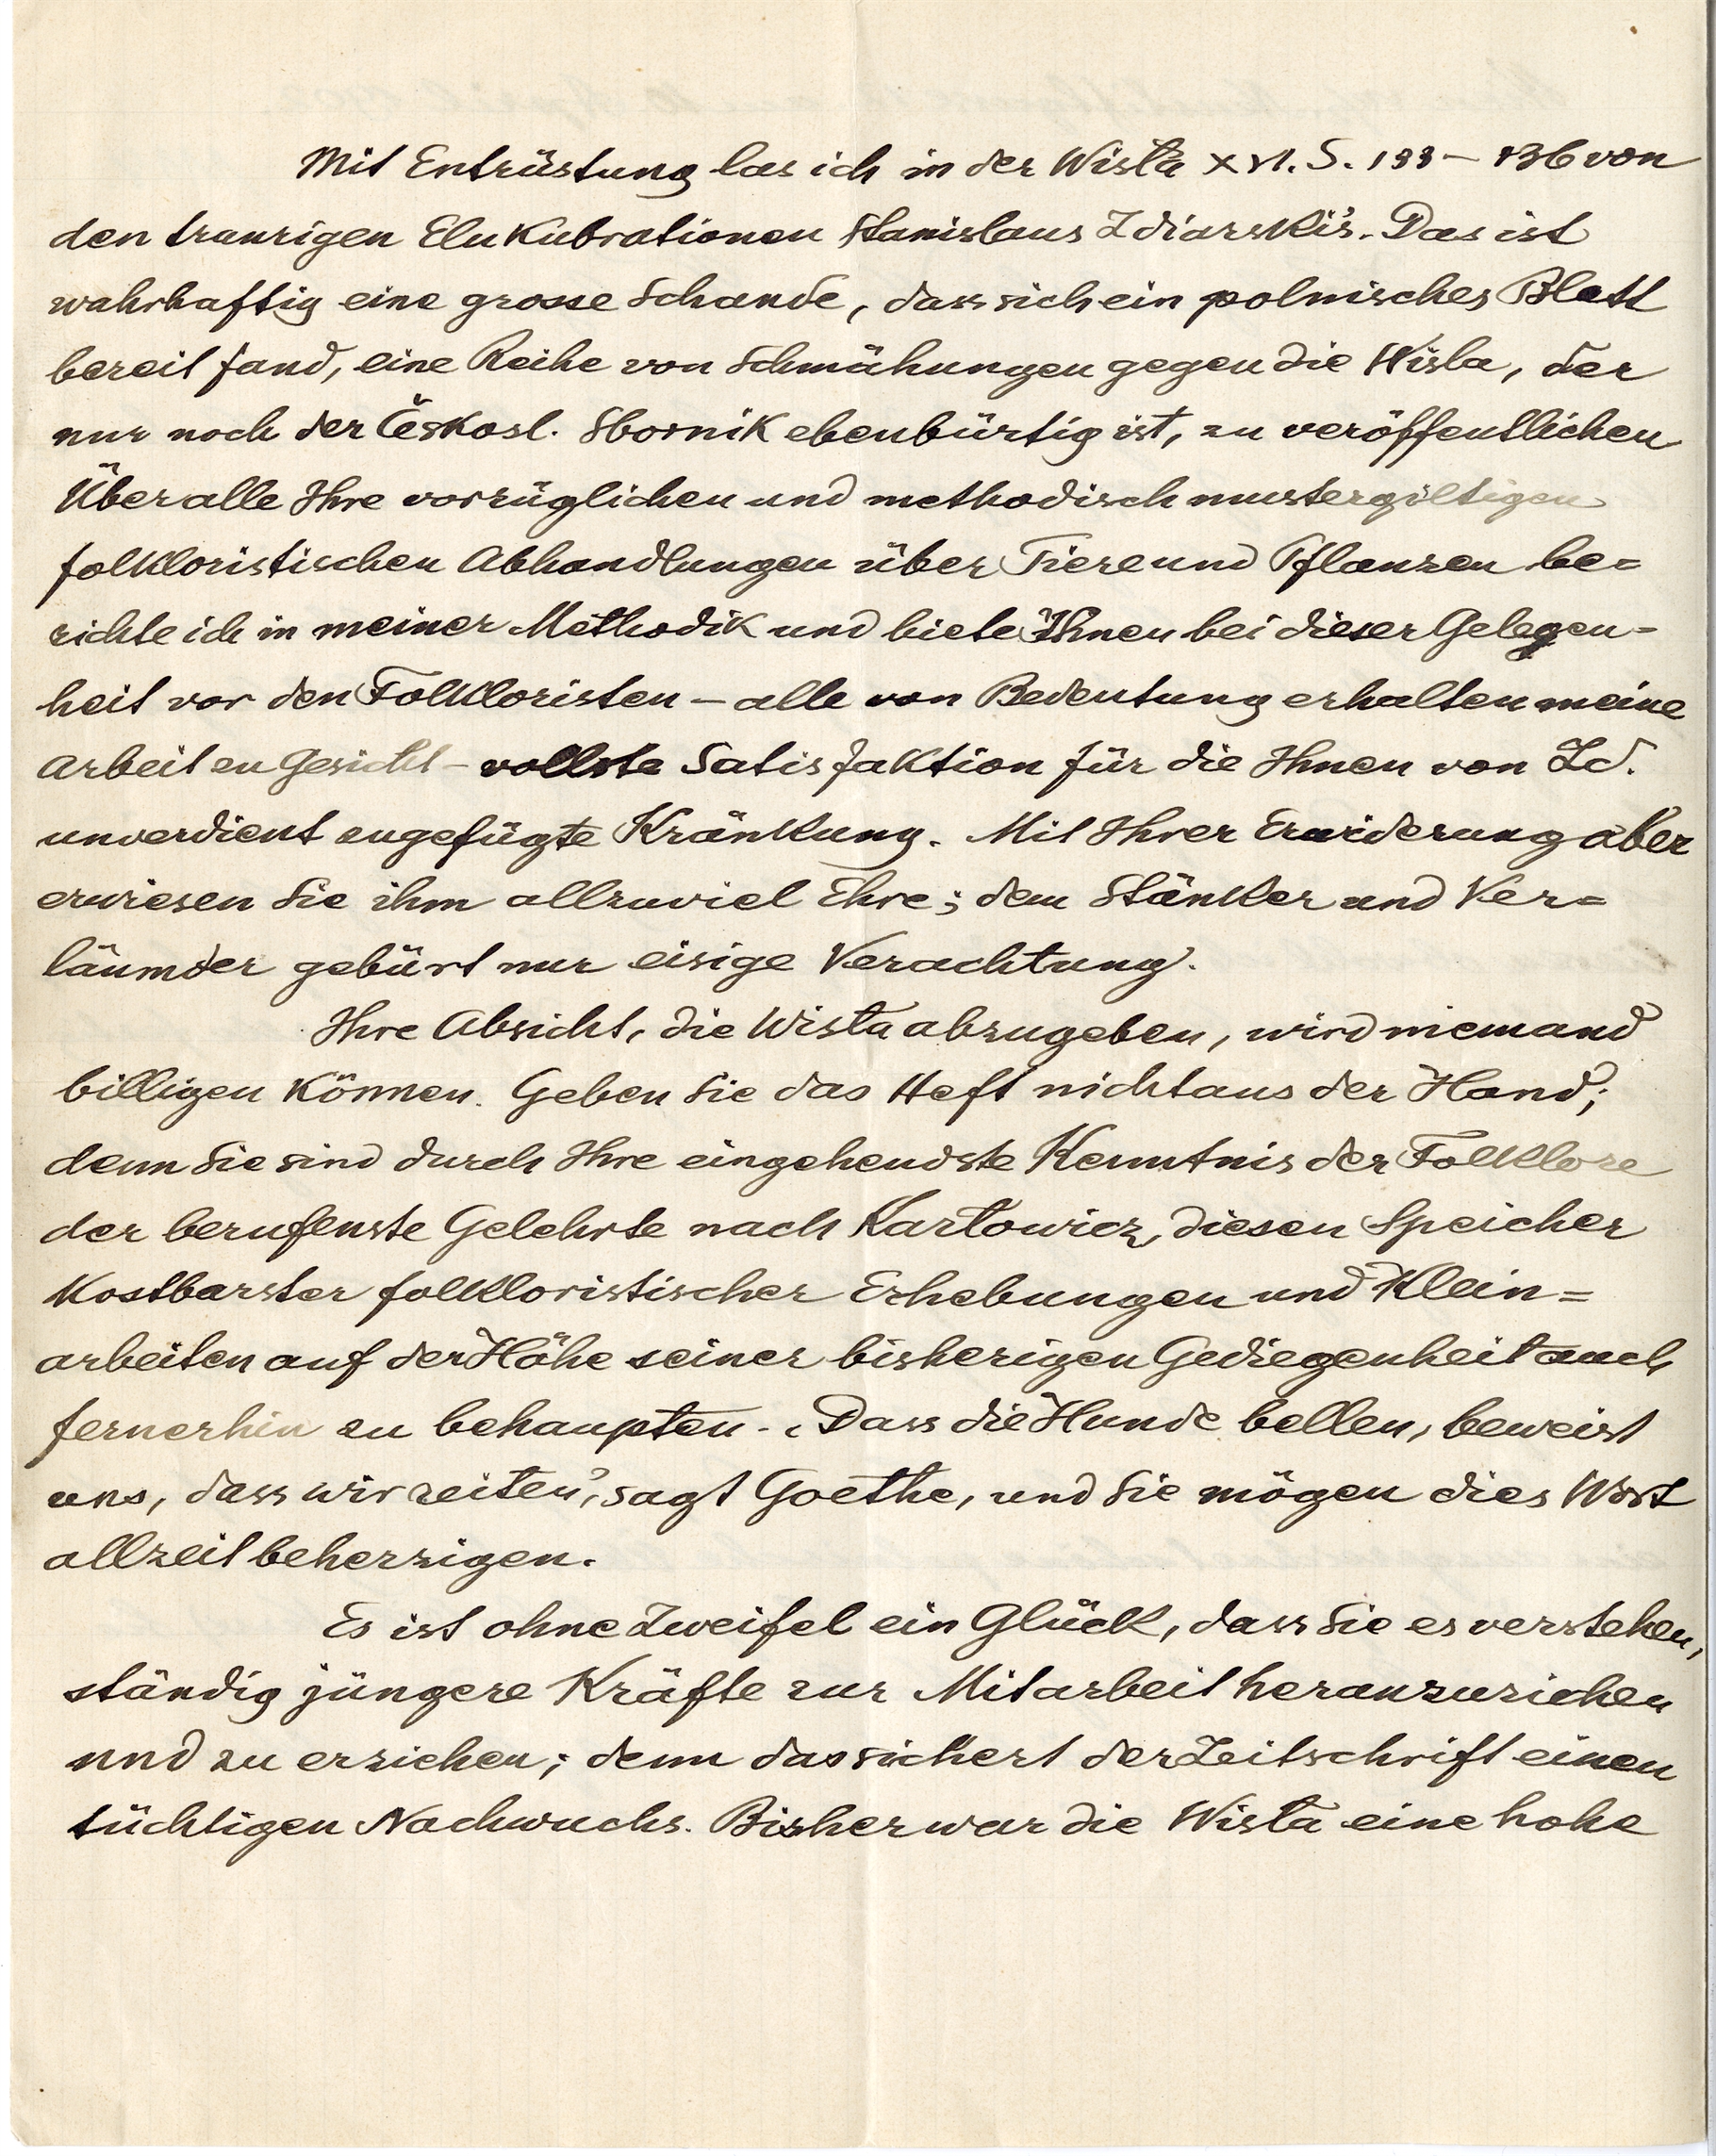 Mit Entrüstung las ich in der Wisła XVI. S. 133 – 136 von
den traurigen Elukubrationen Stanislaus Zdiarski's. Das ist
wahrhaftig eine grosse Schande, dass sich ein polnisches Blatt
bereit fand, eine Reihe von Schmähungen gegen die Wisla, der
nur noch der Českosl. Sbornik ebenbürtig ist, zu veröffentlichen
Über alle Ihre vorzüglichen und methodisch mustergiltigen
folkloristischen Abhandlungen über Tiere und Pflanzen be=
richte ich in meiner Methodik und biete Ihnen bei dieser Gelegen=
heit vor den Folkloristen – alle von Bedeutung erhalten meine
Arbeit zu Gesicht – vollste Satisfaktion für die Ihnen von Zd.
unverdient zugefügte Kränkung. Mit Ihrer Erwiderung aber
erwiesen Sie ihm allzuviel Ehre; dem Stänker und Ver=
läumder gebürt nur eisige Verachtung.
Ihre Absicht, die Wisła abzugeben, wird niemand
billigen können. Geben Sie das Heft nicht aus der Hand;
denn Sie sind durch Ihre eingehendste Kenntnis der Folklore
der berufenste Gelehrte nach Karłowicz, diesen Speicher
kostbarster folkloristischer Erhebungen und Klein=
arbeiten auf der Höhe seiner bisherigen Gediegenheit auch
fernerhin zu behaupten. ‚Dass die Hunde bellen, beweist
uns, dass wir reiten', sagt Goethe, und Sie mögen dies Wort
allzeit beherzigen.
Es ist ohne Zweifel ein Glück, dass Sie es verstehen,
ständig jüngere Kräfte zur Mitarbeit heranzuziehen
und zu erziehen; denn das sichert der Zeitschrift einen
tüchtigen Nachwuchs. Bisher war die Wisła eine hohe